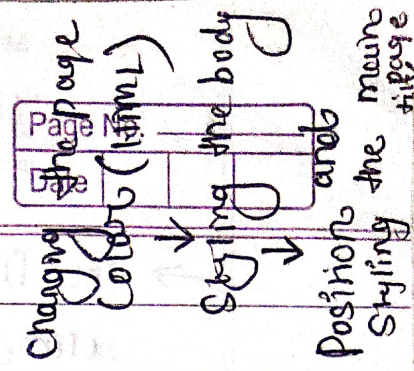 Page No.
Date
Changing the page
Color (HTML)
↓
Styling the body
↓
Position and
Styling the main